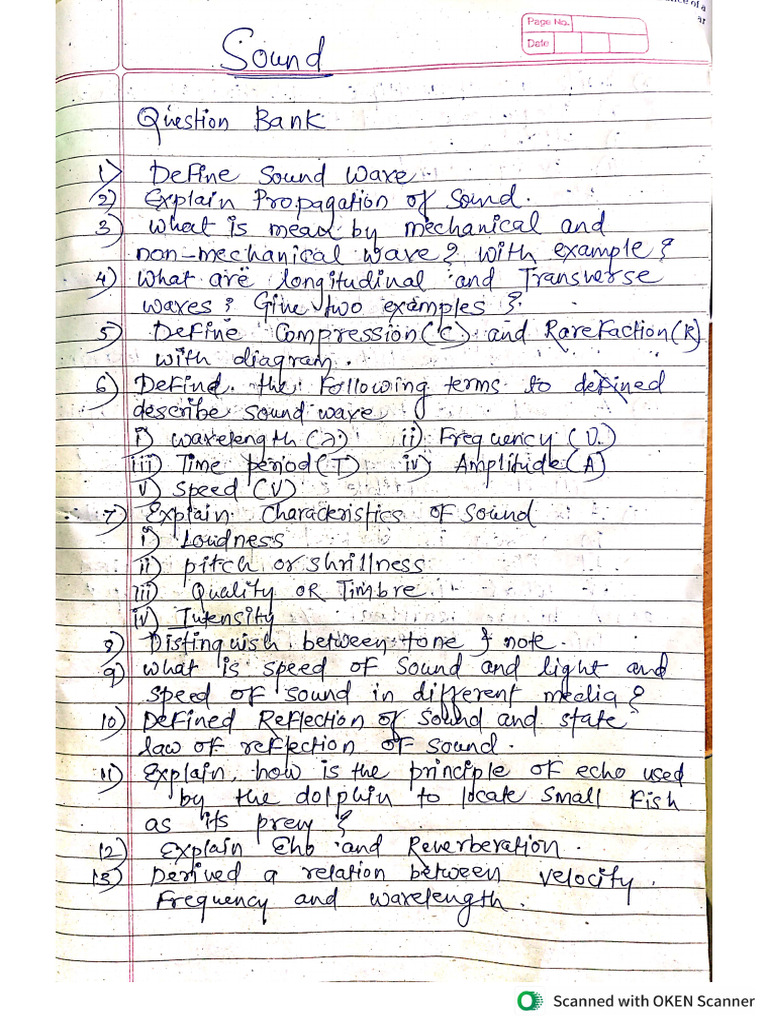 Page No.
Date
Sound
Question Bank
1) Define Sound Wave.
2) Explain Propagation of Sound.
3) What is mean by mechanical and
non-mechanical wave? with example?
4) What are longitudinal and Transverse
waves? Give two examples?
5) Define Compression(C) and RareFaction(R)
with diagram.
6) Defind the Following terms to defined
describe sound wave
i) wavelength (λ) ii) Frequency (υ)
iii) Time period (T) iv) Amplitude (A)
v) Speed (V)
7) Explain Characteristics of Sound
i) Loudness
ii) pitch or shrillness
iii) Quality OR Timbre.
iv) Intensity
8) Distinguish between tone & note.
9) What is speed of Sound and light and
speed of sound in different media?
10) Defined Reflection of Sound and state
law of reflection of Sound.
11) Explain, how is the principle of echo used
by the dolphin to locate small Fish
as its prey?
12) Explain Eho and Reverberation.
13) Derived a relation between velocity,
Frequency and wavelength.
Scanned with OKEN Scanner